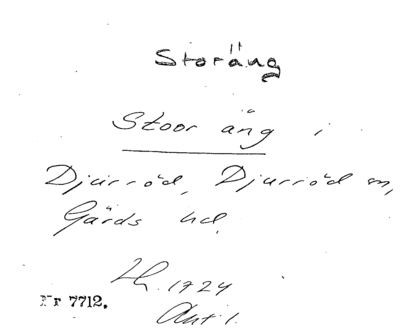 Storäng
Stoor äng i
Djurröd, Djurröd sn,
Gärds hd.
Lh. 1724
Nr 7712.
Akt 1.